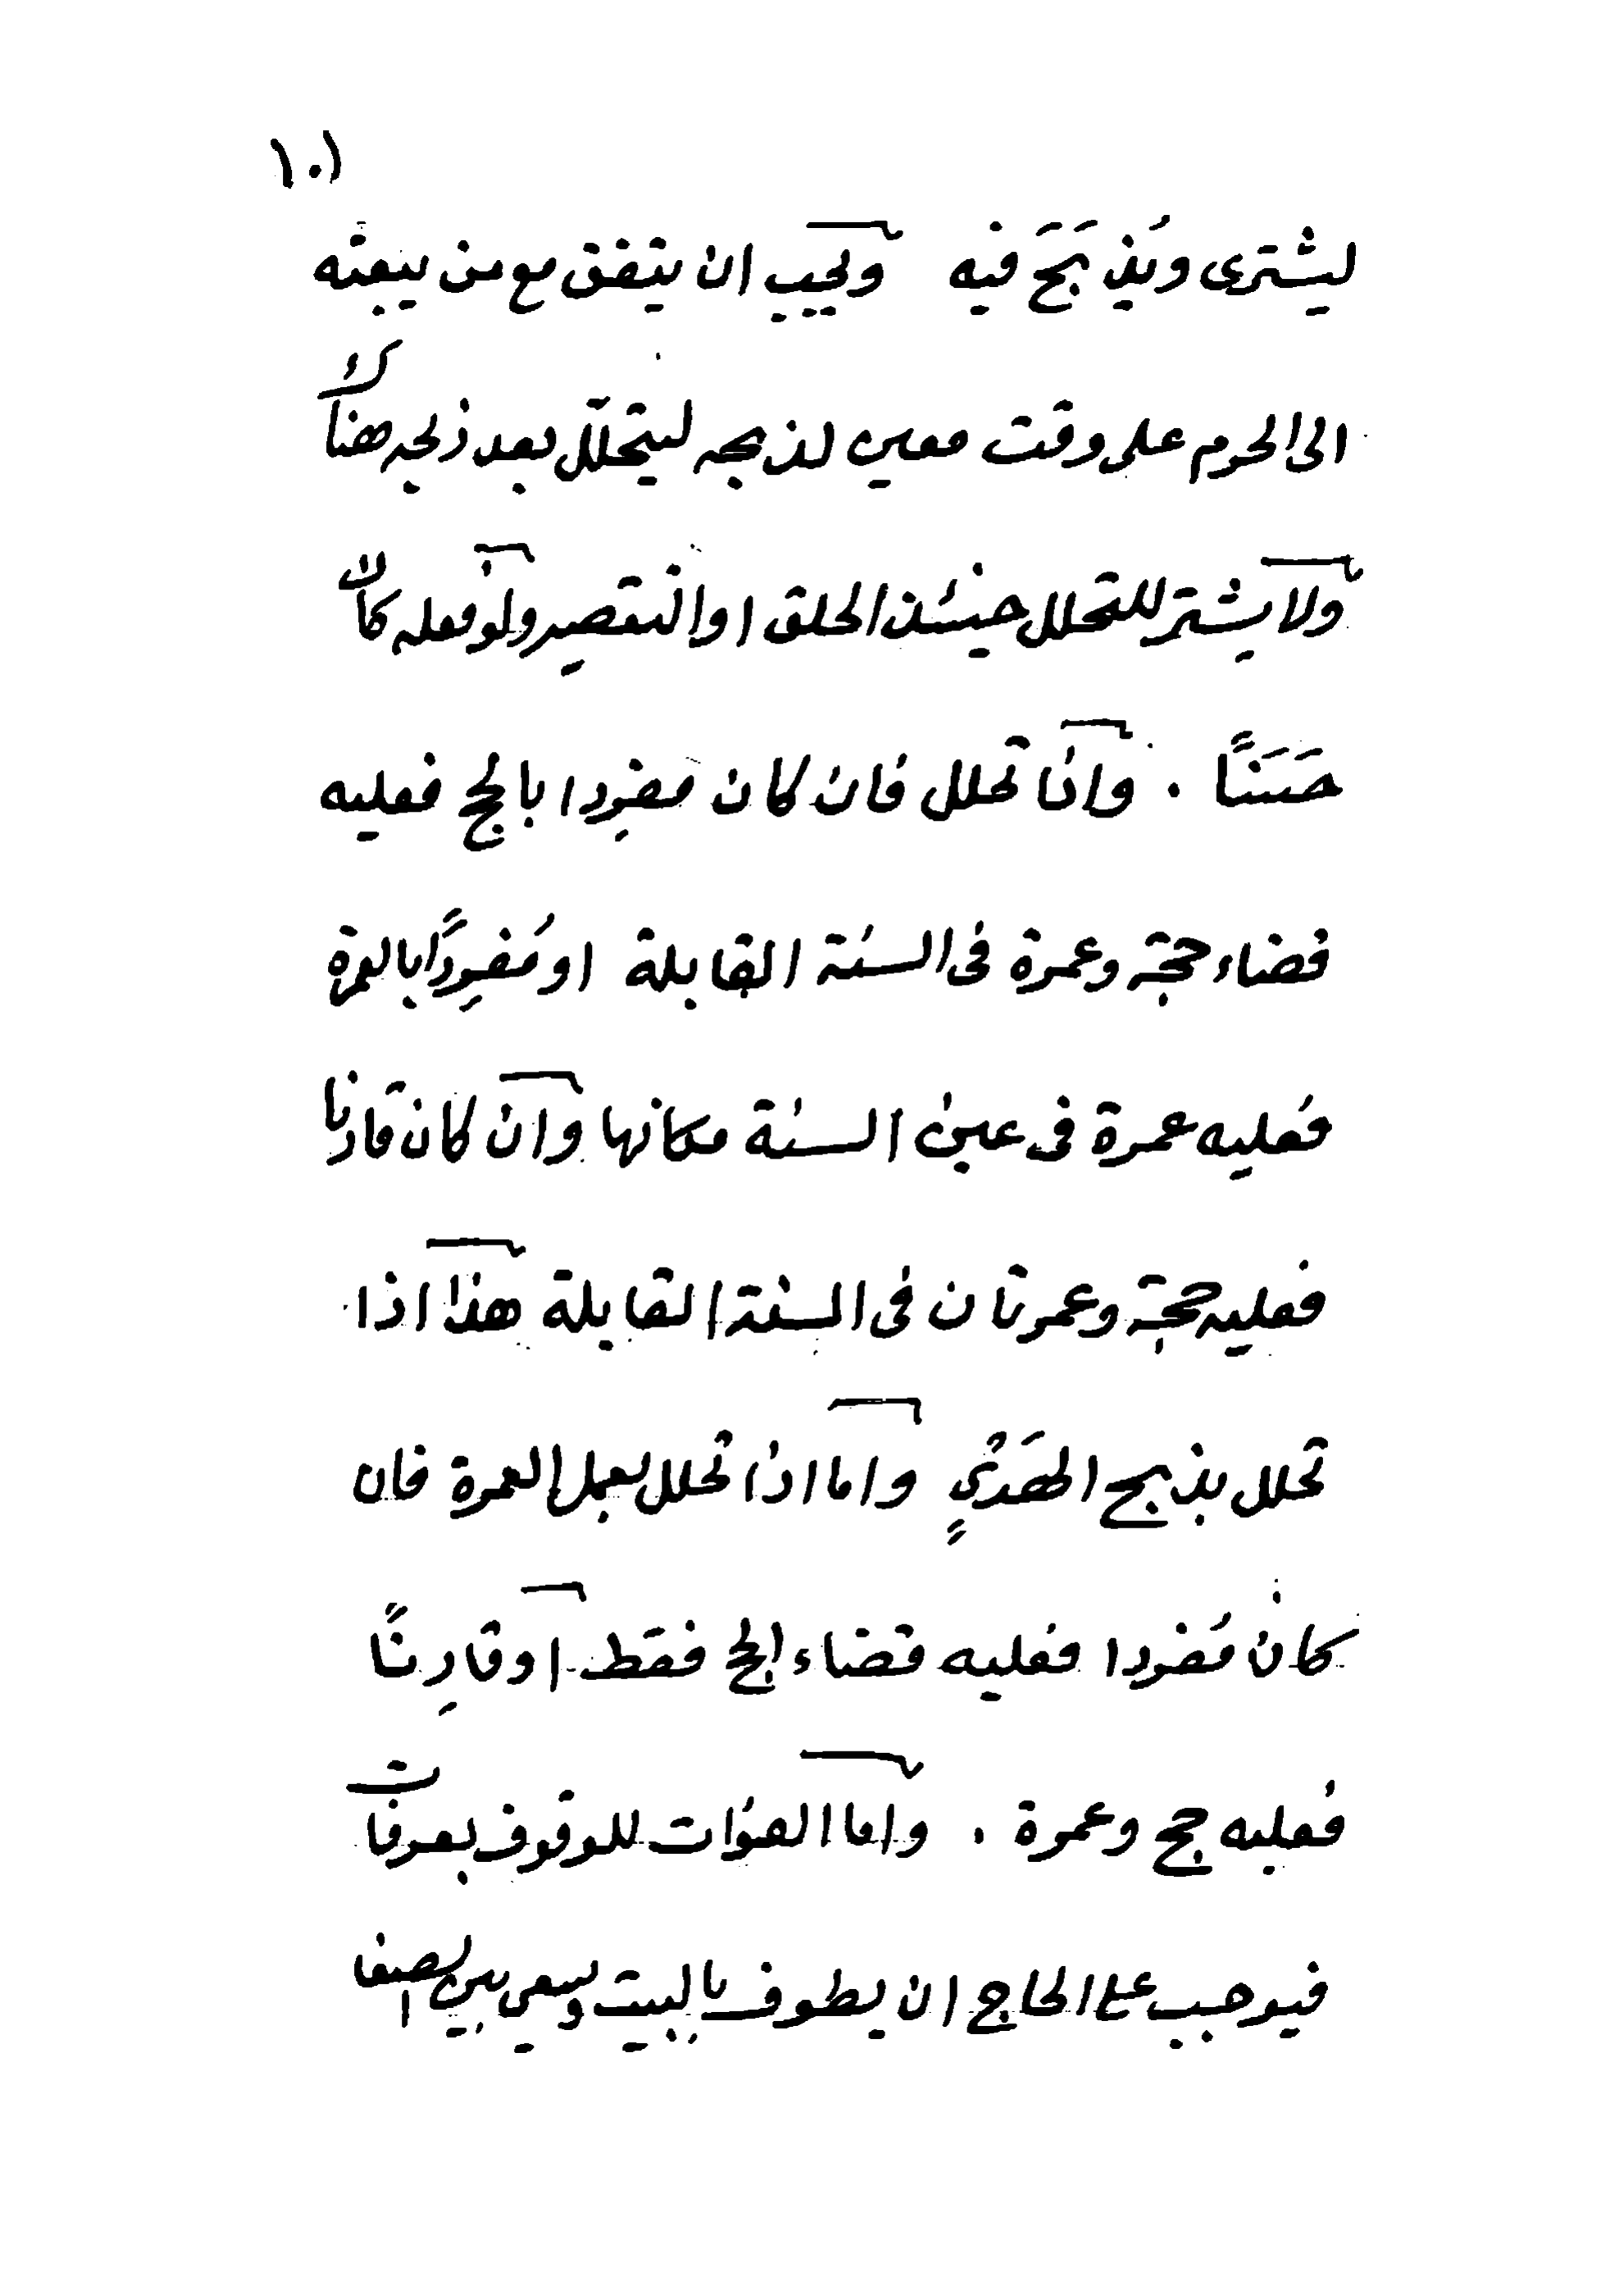 ١٠١
ليشترى ويُذبَحَ فيه ويجب ان يتفق مع من يبعثه
الى الحرم على وقت معين لذبحه ليتحلّل بعد ذبحه هناك
ولا يشتر للتحلل حينئذ الحلق او التقصير ولو فعله كان
حَسَنًا . واذا تحلل فان كان مفرِدا بالحج فعليه
قضاء حجة وعمرة فى السنة القابلة او مُفرِدًا بالعمرة
فعليه عمرة فى عين السنة مكانها وان كان قارنا
فعليه حجة وعمرتان فى السنة القابلة هذا اذا
تحلل بذبح الهَدْيٍ واما اذا تحلل بعمل العمرة فان
كان مُفردا فعليه قضاء الحج فقط او قارِنًا
فعليه حج وعمرة . واما الفوات للوقوف بعرفات
فيوجب على الحاج ان يطوف بالبيت ويسعى بين الصفا